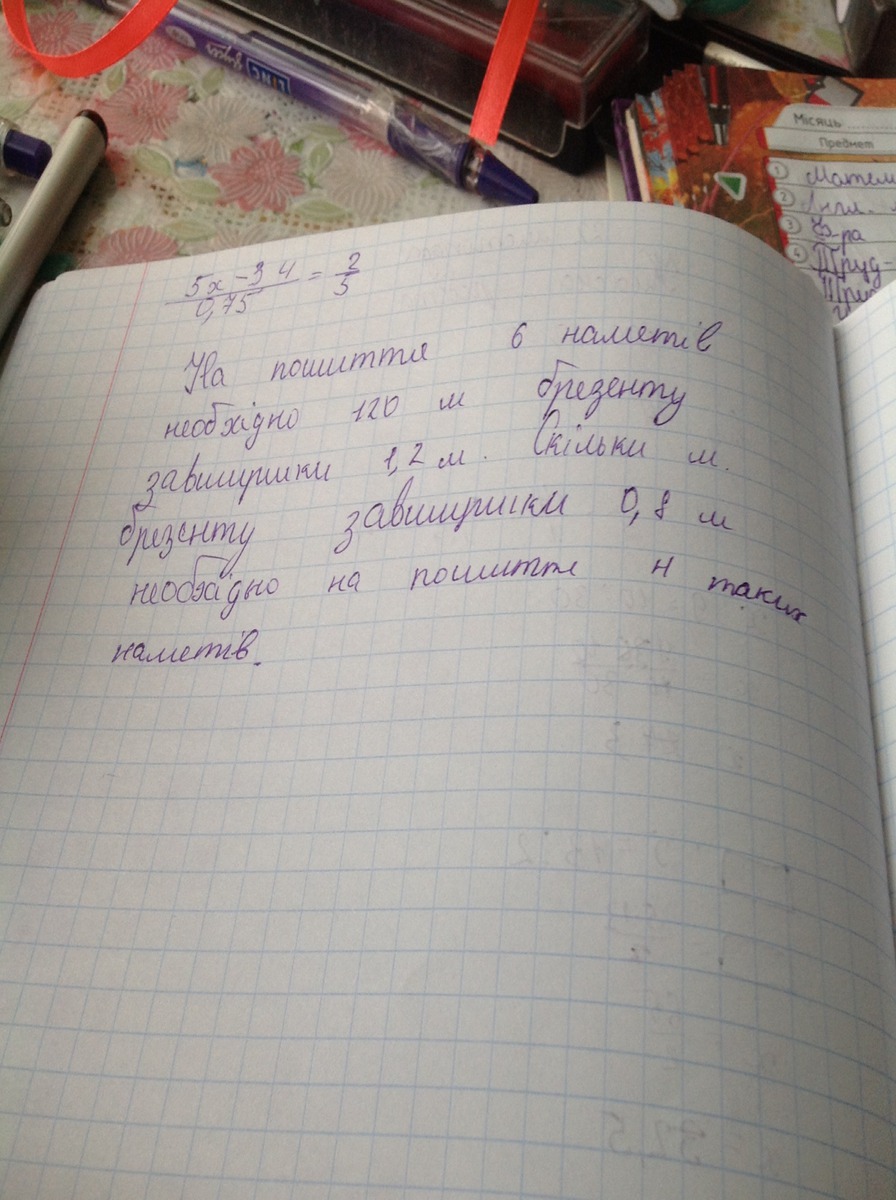 LINC
Місяць
Предмет
1 Матем
2 Англ.
3
4 Труд-
5x - 3 4 / 0,75 = 2 / 5
На пошиття 6 наметів
необхідно 120 м брезенту
завширшки 1,2 м. Скільки м.
брезенту завширшки 0,8 м
необхідно на пошиття н таких
наметів.